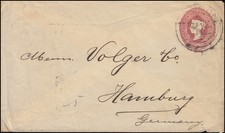 Messrs Volger & Co.
Hamburg
Germany